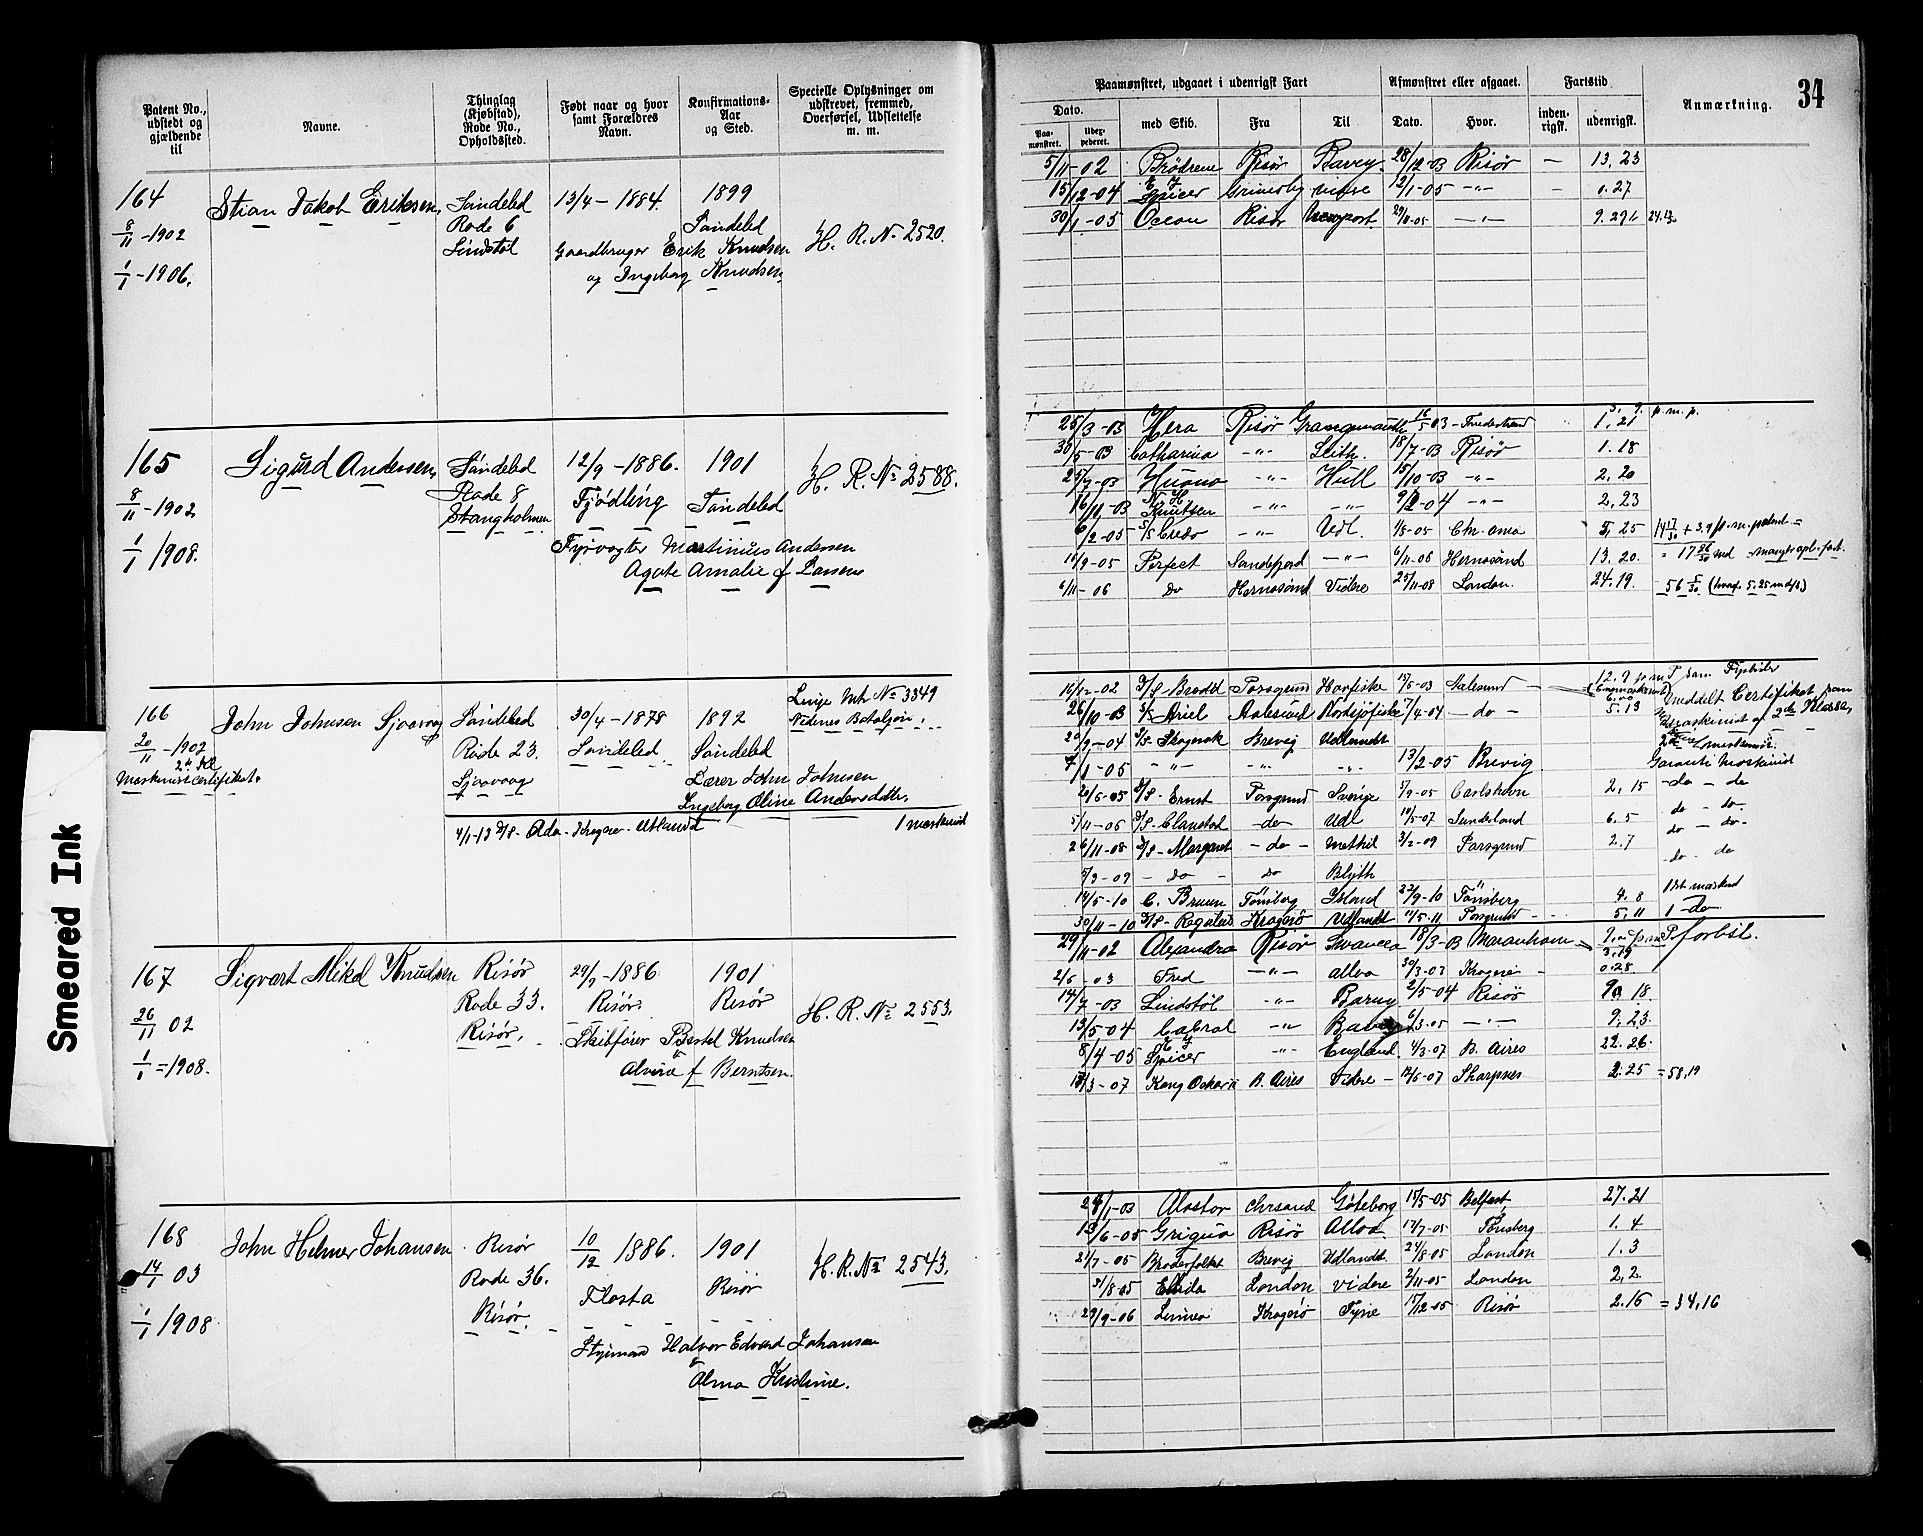 Patent No., udstedt og gjældende til
Navne.
Thinglag (Kjøbstad), Rode No., Opholdssted.
Født naar og hvor samt Forældres Navn.
Konfirmations-Aar og Sted.
Specielle Oplysninger om udskrevet, fremmed, Overførsel, Udslettelse m. m.
164
8/11-1902
1/1-1906.
Stian Jakob Eriksen,
Søndeled
Rode 6
Lindstøl
13/4-1884.
Gaardbruger Erik Knudsen
og Ingeborg Knudsen,
1899
Søndeled
H. R. No 2520.
165
8/11-1902
1/1 1908.
Sigurd Andersen,
Søndeled
Rode 8
Stangholmen
12/9-1886.
Fjødling
Fyrvogter Martinius Andersen
Agate Amalie f Larsen
1901
Søndeled
H. R. No 2588.
166
20/11-1902
2den Kl
Maskinistcertifikat.
John Johnsen Sjøvaag
Søndeled
Rode 23.
Sjøvaag
30/4-1878
Søndeled
1892
Søndeled
Lærer John Johnsen
Ingeborg Oline Andersdatter.
Linje Mtr No 3349
Nedenes Bataljon.
4/1-13 D/S- Ada- Kragerø- Utlandd
1 maskinist
167
26/11 02
1/1=1908.
Sigvart Mikal Knudsen
Risør
Rode 33.
Risør.
29/9-1886
Risør.
Skibfører Bertel Knudsen
& Alvine f Berntsen.
1901
Risør
H. R. No 2553.
168
14/1 03
1/1 1908
John Helmer Johansen
Risør
Rode 36.
Risør.
10/12 1886.
Flosta
Styrmand Halvor Edvard Johansen
& Alma Kristine.
1901
Risør
H. R. No 2543.
Smeared Ink
34
Paamønstret, udgaaet i udenrigsk Fart
Afmønstret eller afgaaet.
Fartstid
Anmærkning.
Dato.
med Skib.
Fra
Til
Dato.
Hvor.
inden-rigsk.
udenrigsk.
Paa-mønstret.
5/11-02 Brødrene Risør Barry 28/12-03 Risør - 13,23
15/12-04 E J Spicer Grimsby 12/1-05 -"- - 0.27
30/1-05 Ocean Risør Newport 29/11-05 -"- 9.29
25/3-03 Hera Risør Grangemouth 16/5 03 1,21 p. m. p.
30/5-03 Catharina -"- Leith. 18/7-03 Risør 1.18
25/7-03 -"- Hull 15/10-03 -"- 2,20
16/11-03 N H Knutsen -"- -"- -04 -"- 2,23
6/2-05 S/S Credo -"- Udl. 1/8-05 25
15/9-05 Perfect Sandefjord -"- 6/11-06 Hernøsand 13.20.
6/11-06 do Hernøsand Videre 25/11-08 London. 24.19.
16/12-02 Porsgrund Havfiske 17/5-03 Aalesund 12.9
26/10-03 S/S Ariel Aalesund Nordsjøfiske 7/4-04 - do - 5.13
Meddelt Certifikat som
Maskinist af 2de Klasse
20/9-04 D/S- Skogerak Brevig Udlandt
7/1-05 -"- -"- -"- 13/2-05 Brevig
20/5-05 D/S- Ernst Porsgrund Sverige 7/9-05 Carlshavn 2,15 -do - do
5/11-06 -do- Udl 19/5-07 Sunderland 6.5 do - do-
26/11-08 D/S- Margaret -do- Methil 3/2-09 Porsgrund 2.7 do - do-
5/9-09 - do - do Blyth do- do
14/5-10 C. Bruun Tönsberg Island 23/9-10 Tönsberg 4.8 1st maskinist
30/11-10 D/S- Regulus Kragerø Udlandt 11/5-11 Porsgrund 5,11 1-do
29/11-02 Alexandra Risør Swansea 18/3-03 Maranham 3.19
2/5 03 Fred -"- Alloa Kragerø - 0.28
14/7-03 Lindstøl -"- Barry 2/5-04 Risør 9 18.
13/5-04 Cabral -"- Barry 6/3-05 -"- 9.23.
8/4-05 E J Spicer -"- England 4/3-07 B. Aires 22.26.
13/3-07 Kong Oskar II B. Aires Videre - 12/6-07 Sharpnes 2.25 = 58,19
28/1-03 Alastor Chrsand Göteborg 15/5-05 Belfast 27.21
12/6-05 Grigua Risør Alloa 17/7-05 Tönsberg 1.4
21/7-05 Broderfolket Brevig Udlandt 24/8-05 London 1.3
31/8-05 Ellida London videre 2/11-05 London 2,2.
29/9-06 Linnea Kragerø Tyne 15/12-05 Risør 2.16 = 34,16